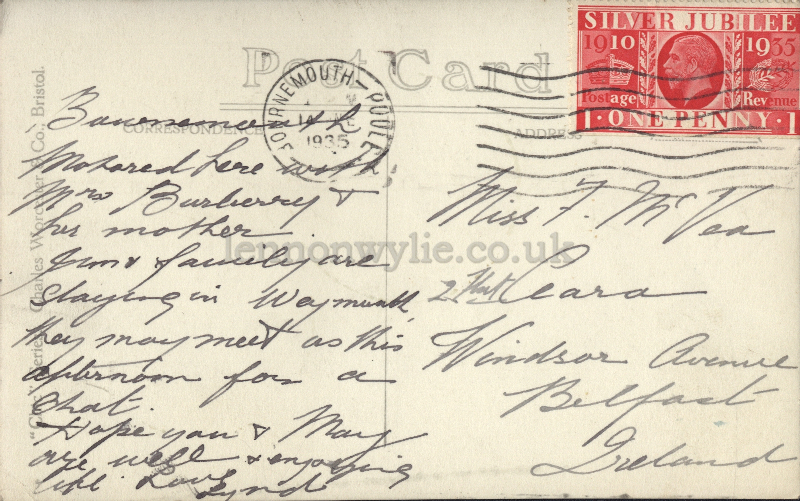 Post Card
CORRESPONDENCE
ADDRESS
BOURNEMOUTH - POOLE
1935
SILVER JUBILEE
1910 1935
Postage Revenue
1 · ONE PENNY · 1
Bournemouth
Motored here with
Mrs Burberry &
his mother.
Jim & family are
staying in Weymouth
they may meet us this
afternoon for a
chat.
Hope you & May
are well & enjoying
life. Love
Lynd
Miss F. McVea
Ceara
Windsor Avenue
Belfast
Ireland
Series. Charles Worcester & Co., Bristol.
lennonwylie.co.uk